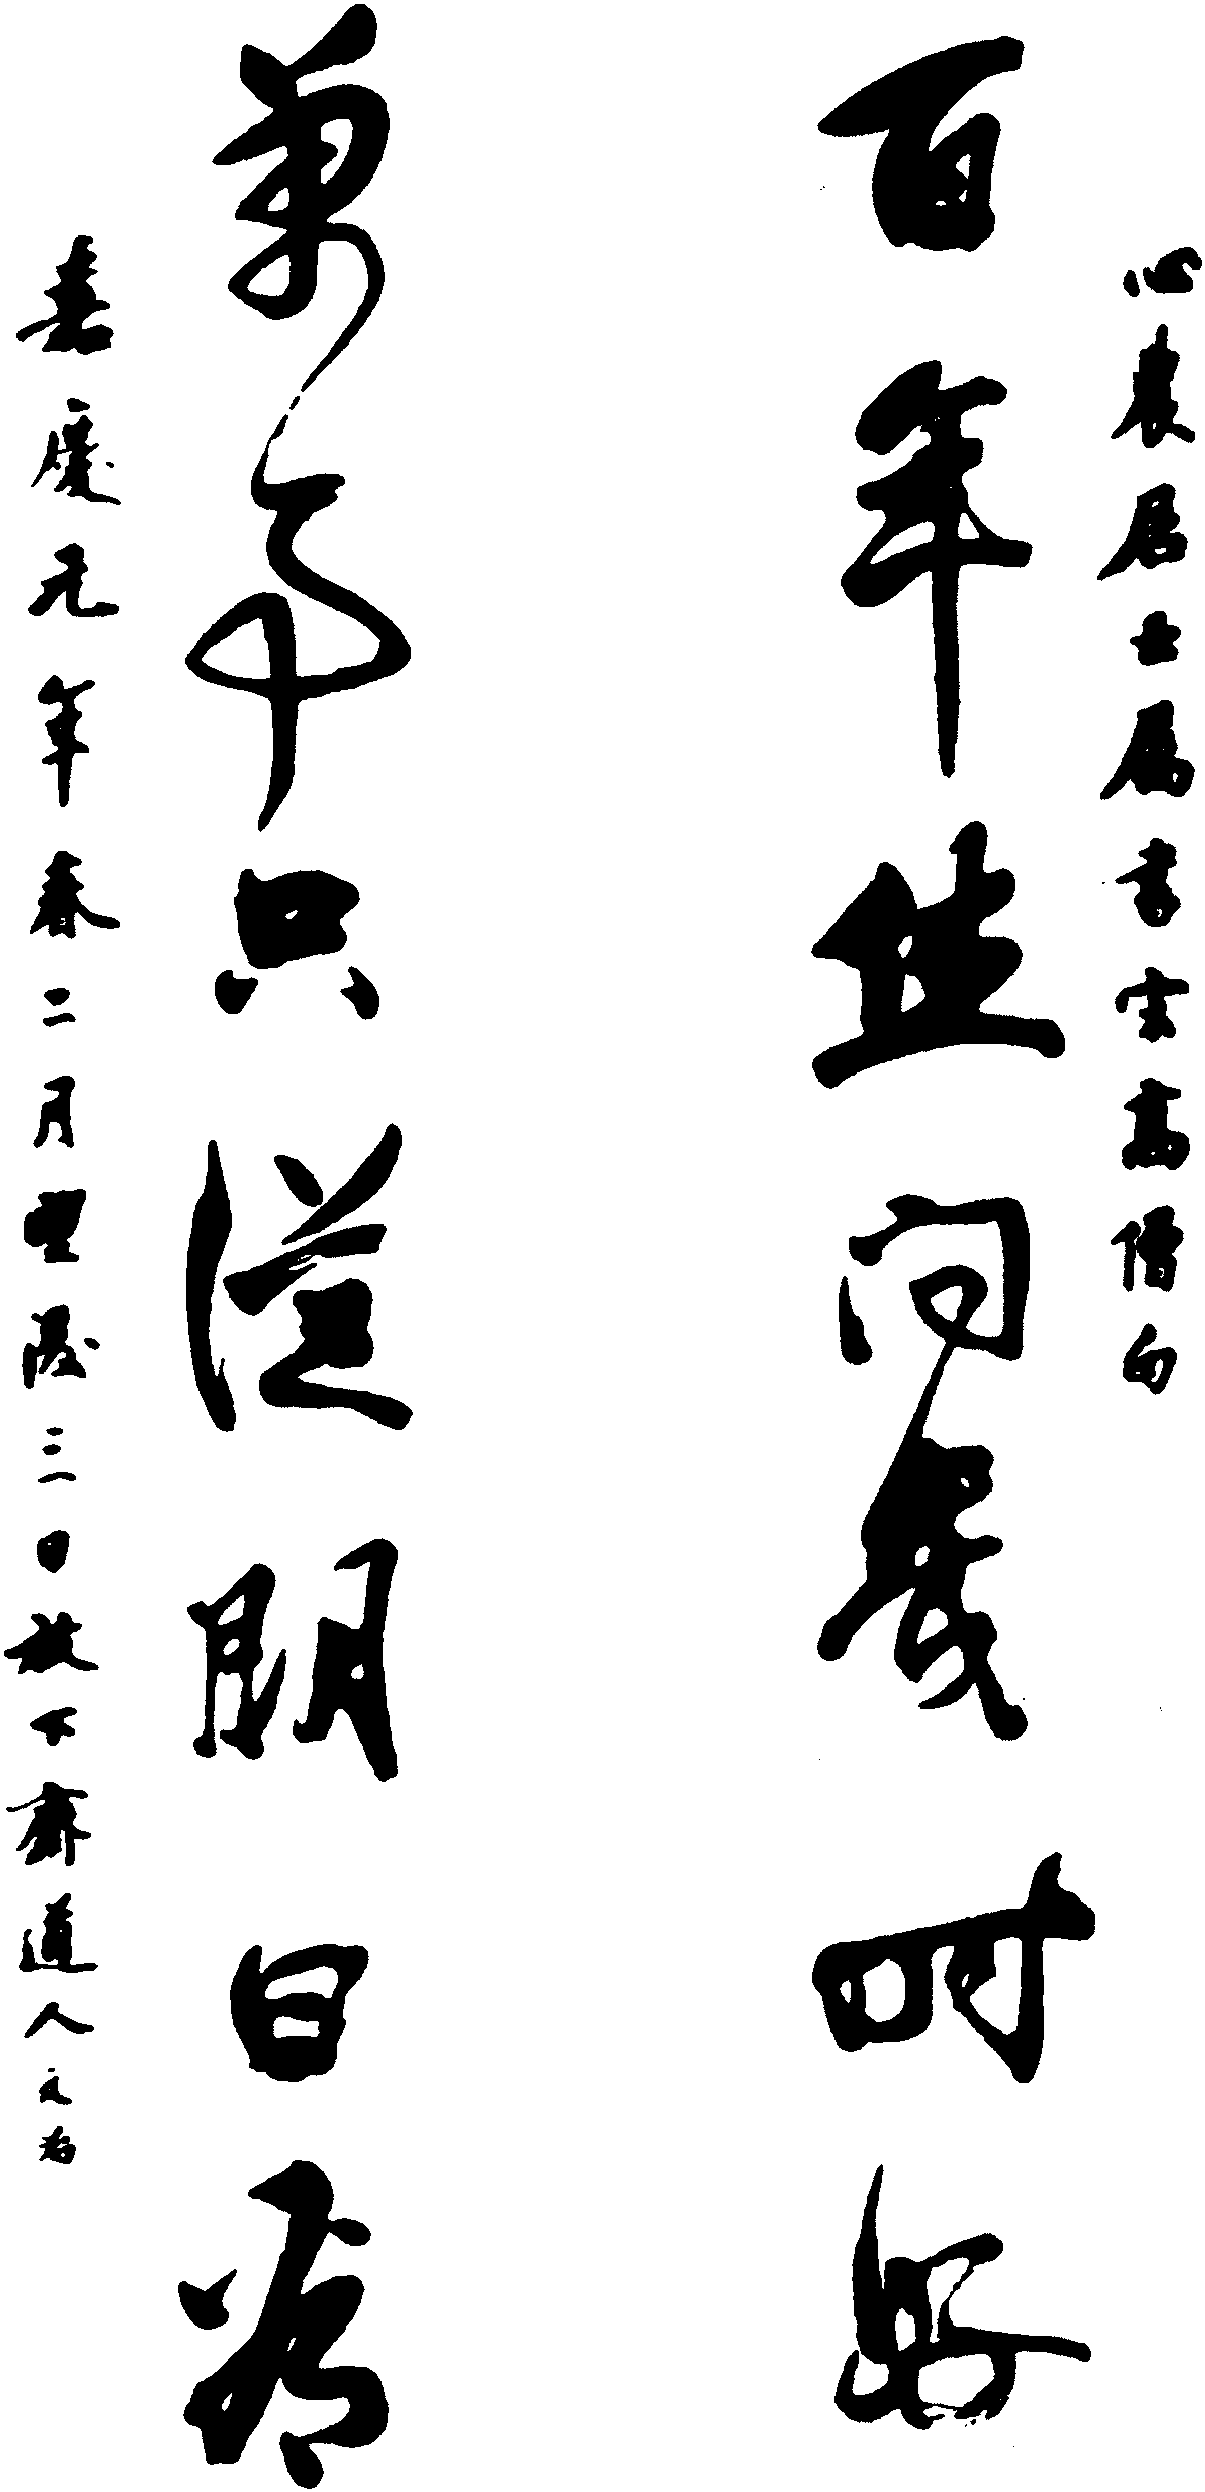 心農居士屬書宋高僧句
百年莫問幾時好
萬事只從閒日看
嘉慶元年春二月望後三日放下齋道人